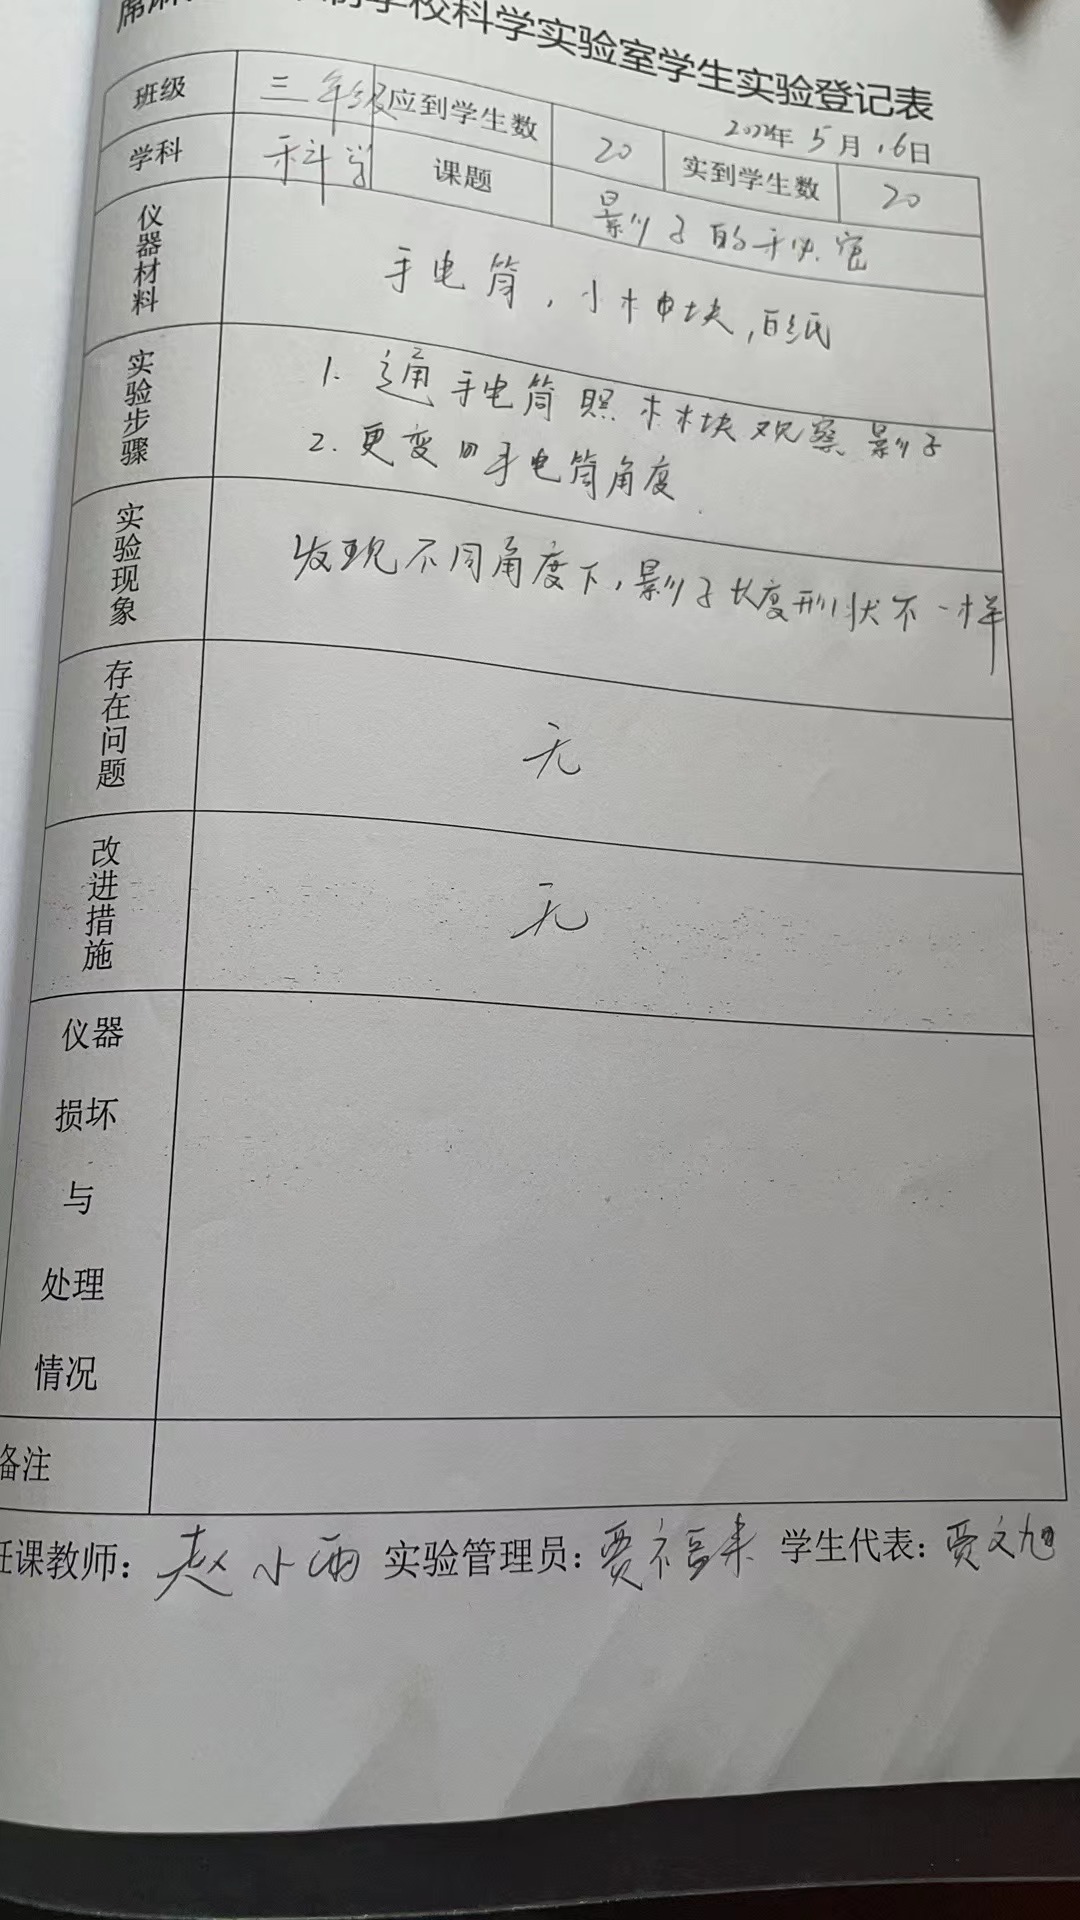 制学校科学实验室学生实验登记表
年 5 月 16日
班级 三年级 应到学生数 20 实到学生数 20
学科 科学 课题 影子的秘密
仪器材料 手电筒，小木块，白纸
实验步骤 1. 通手电筒照木块观察影子
2. 更变手电筒角度
实验现象 发现不同角度下，影子长度形状不一样
存在问题 无
改进措施 无
仪器
损坏
与
处理
情况
备注
任课教师：赵小雨 实验管理员：贾福来 学生代表：贾文旭